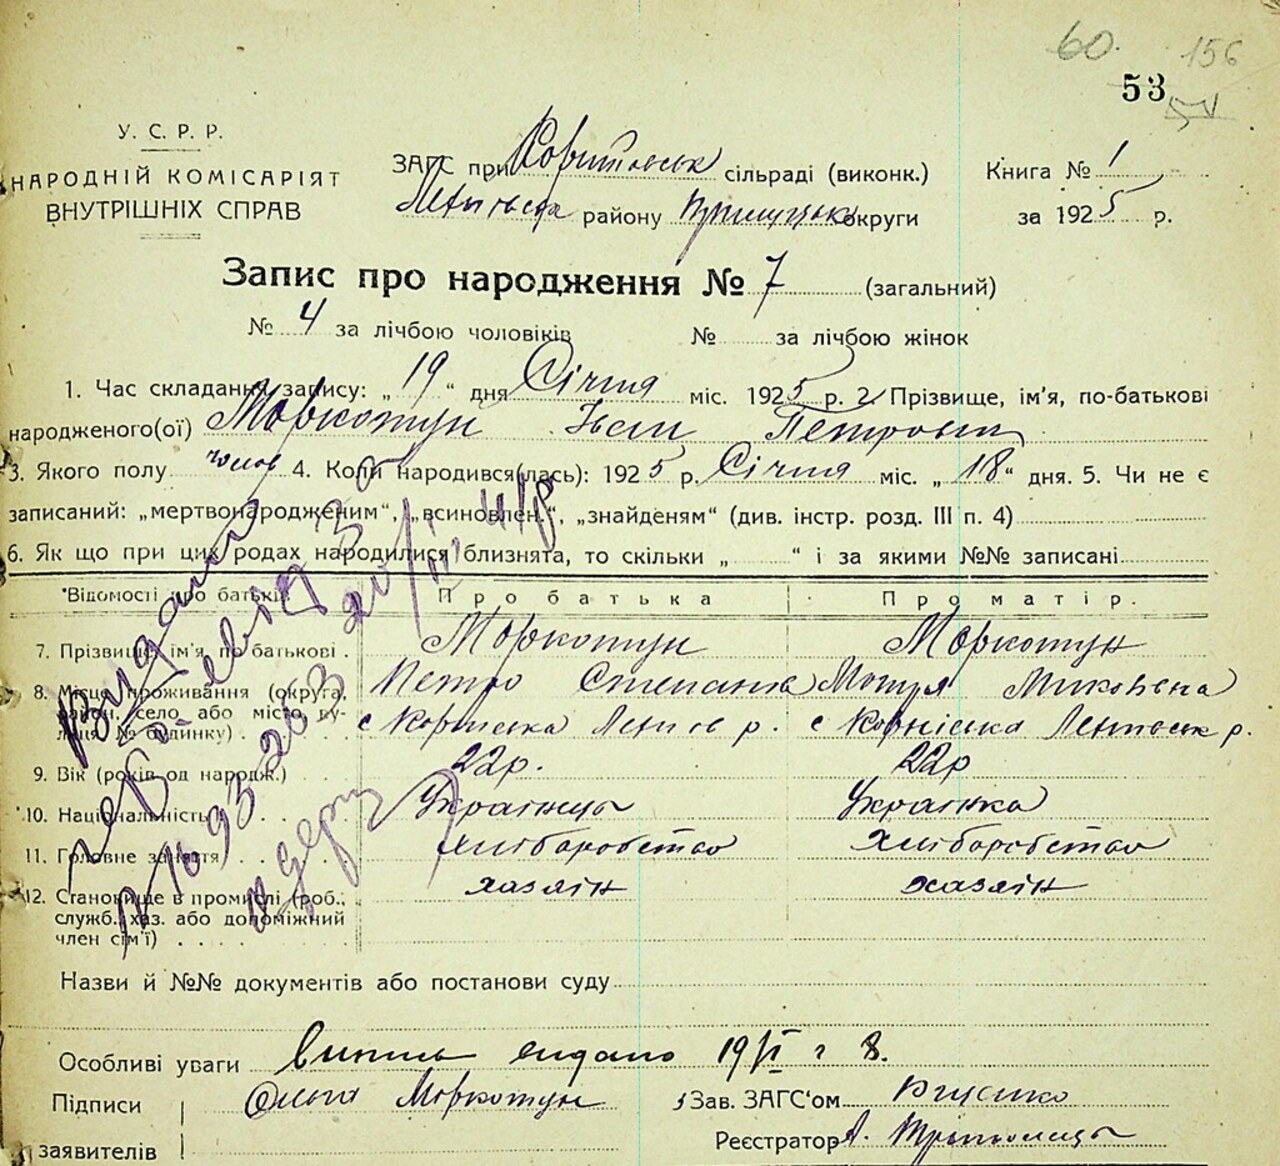 60. 156
53
У. С. Р. Р.
НАРОДНІЙ КОМІСАРІЯТ
ВНУТРІШНІХ СПРАВ
ЗАГС при сільраді (виконк.)
району округи
Книга № 1
за 1925 р.
Запис про народження № 7 (загальний)
№ 4 за лічбою чоловіків № за лічбою жінок
1. Час складання запису: „ 19 “ дня Січня міс. 1925 р. 2. Прізвище, ім'я, по-батькові
народженого(ої) Моркотун Іван Петрович
3. Якого полу чолов 4. Коли народився(лась): 1925 р. Січня міс. „ 18 “ дня. 5. Чи не є
записаний: „мертвонародженим“, „всиновлен.“, „знайденям“ (див. інстр. розд. III п. 4)
6. Як що при цих родах народилися близнята, то скільки „ “ і за якими №№ записані
Відомості про батьків Про батька Про матір.
7. Прізвище, ім'я, по батькові Моркотун Моркотун
Петро Степанів Мотря
8. Місце проживання (округа, район, село або місто, вулиця, № будинку) с р. с р.
9. Вік (років од народж.) 22р. 22р
10. Національність Українець Українка
11. Головне заняття хліборобство хліборобство
12. Становище в промислі (роб., служб., хаз. або допоміжний член сім'ї) хазяїн хазяїн
Видано
16 93-263
Назви й №№ документів або постанови суду
Особливі уваги видано 19
Підписи Ольга Моркотун Зав. ЗАГС'ом
заявителів Реєстратор А.